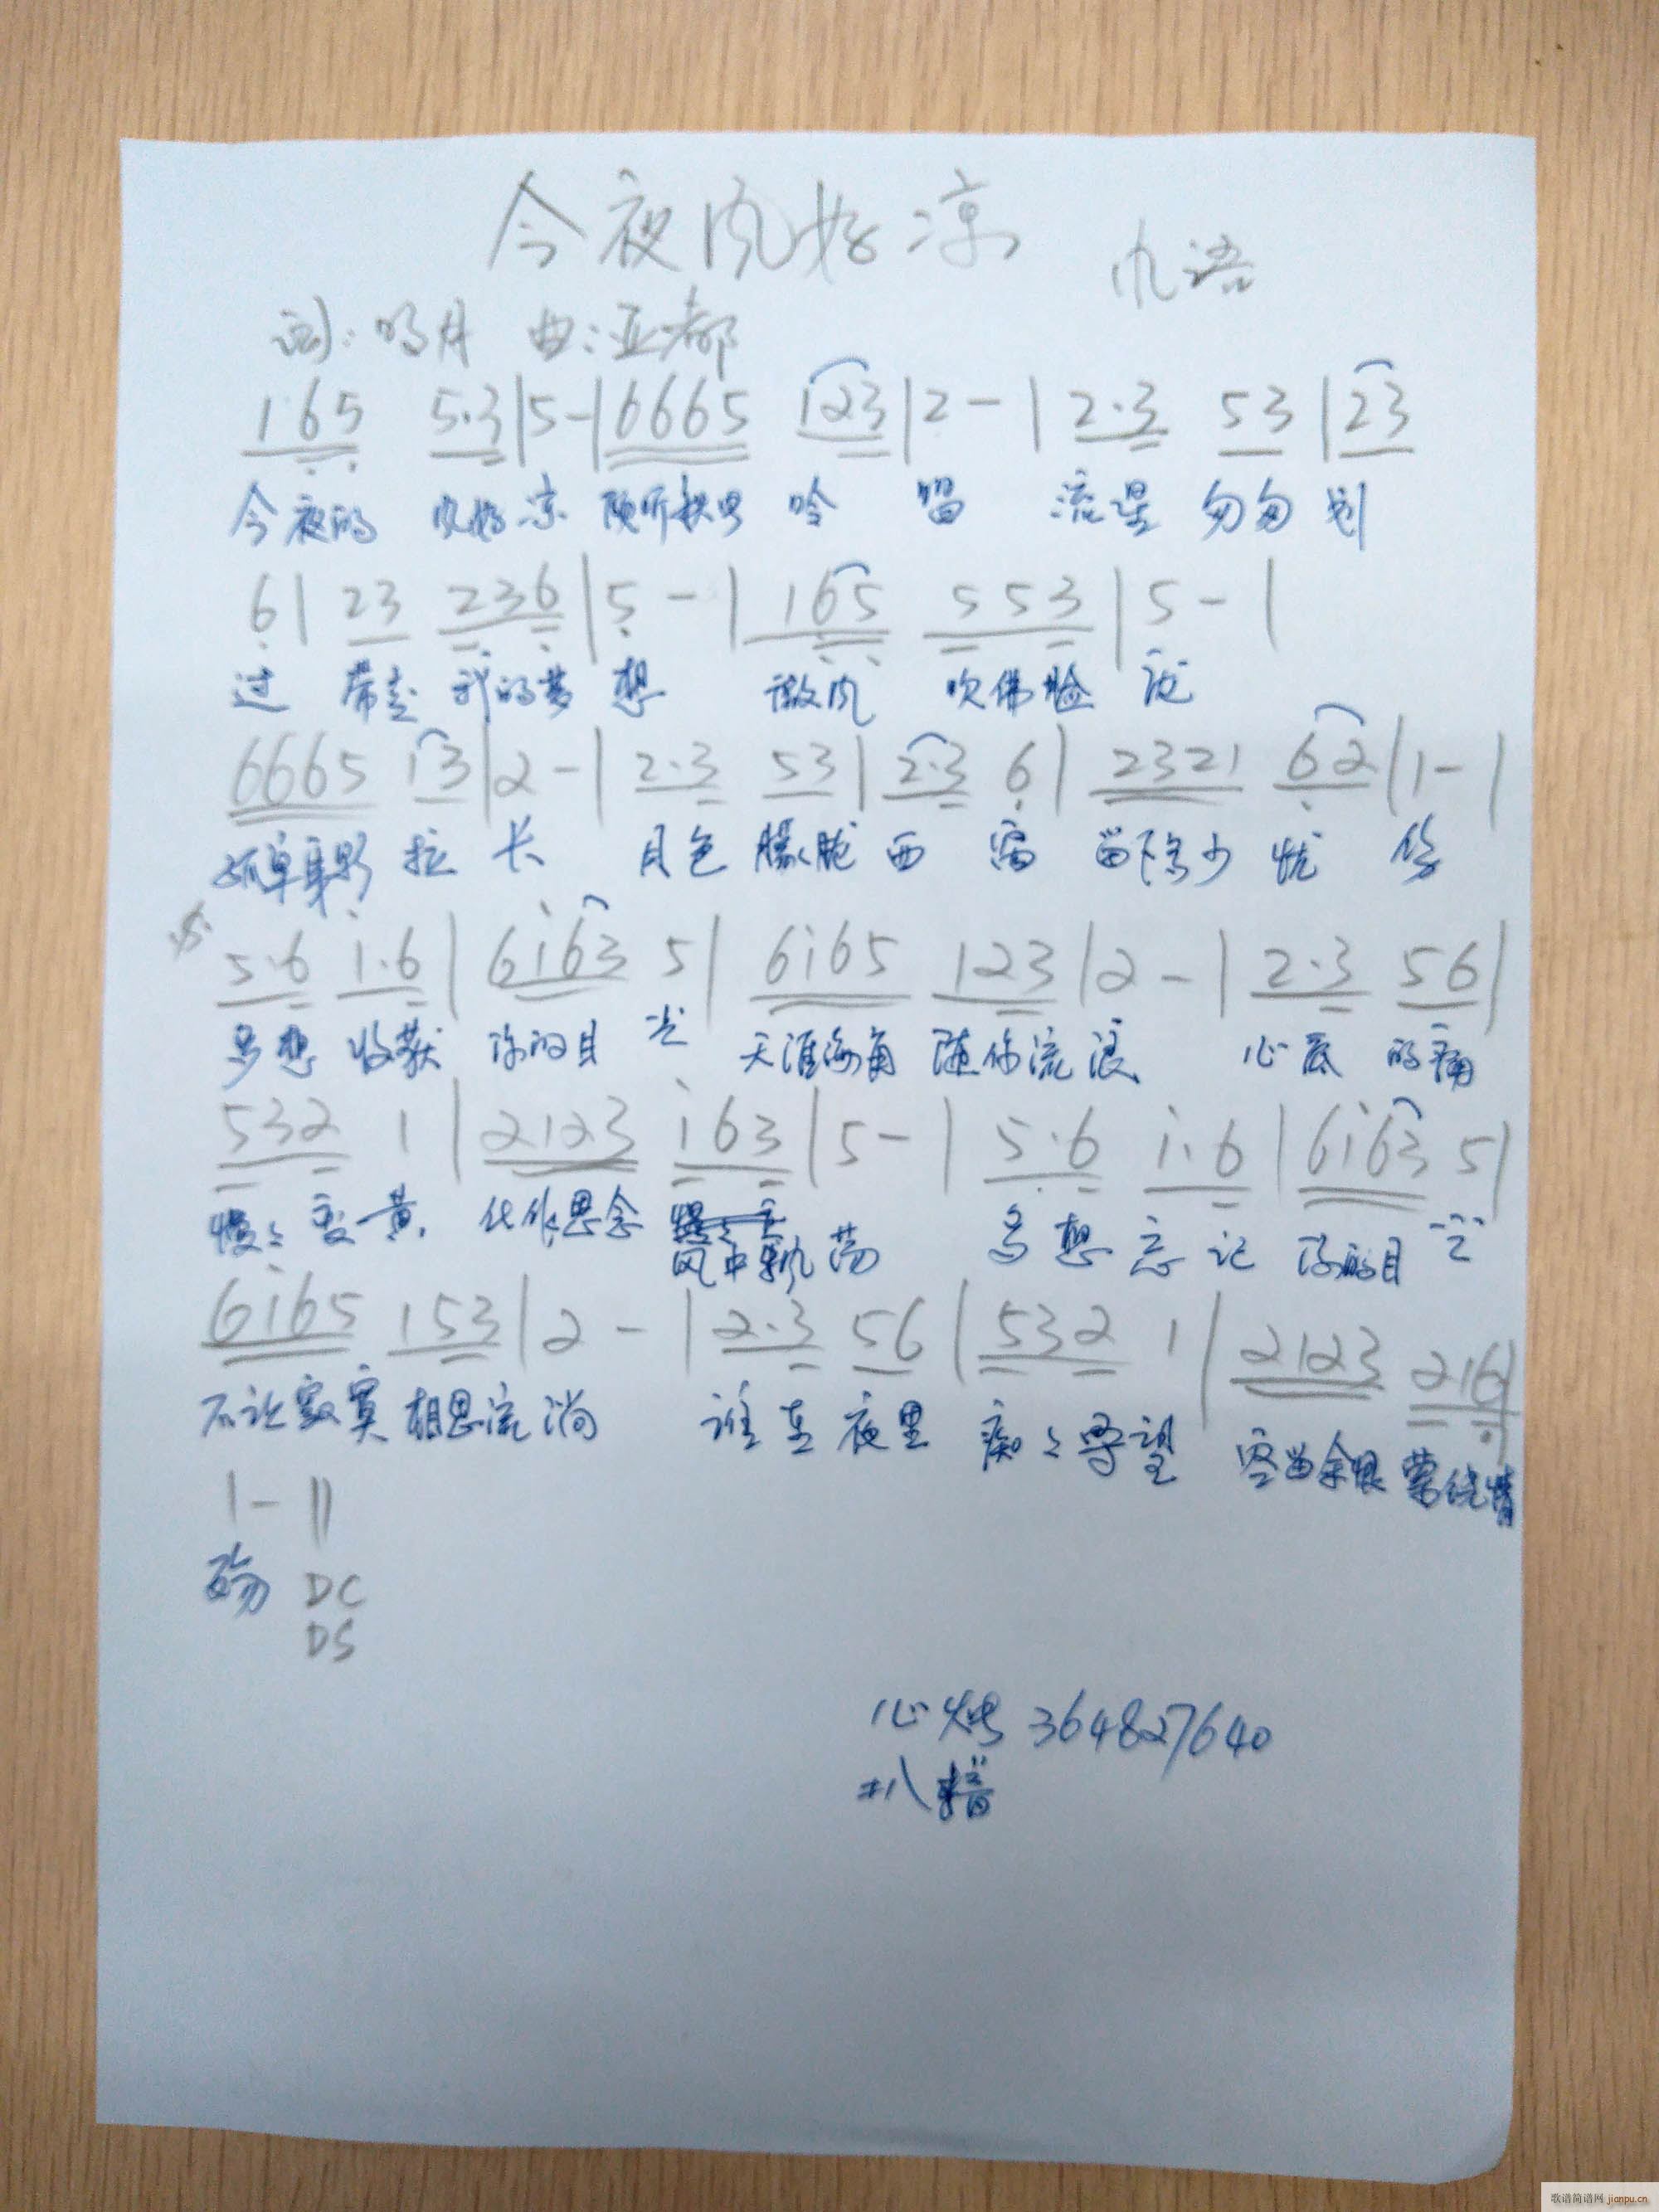 今夜风好凉 九语
词:明月 曲:亚都
1 6 5 5·3|5-|6665 123|2-|2·3 53|23
今夜的 风好凉 倾听秋虫 吟唱 流星 匆匆 划
6|23 236|5-|165 553|5-|
过 带走 我的梦 想 微风 吹佛脸 庞
6665 13|2-|2·3 53|2·3 6|2321 62|1-|
孤单身影 拉 长 月色 朦胧 西 窗 留下多少 忧 伤
5·6 i·6|6i63 5|6i65 123|2-|2·3 56|
多想 收获 你的目 光 天涯海角 随你流 浪 心底 的痛
532 1|2123 i63|5-|5·6 i·6|6i63 5|
慢慢变 黄 化作思念 风中飘 荡 多想 忘记 你的目 光
6i65 153|2-|2·3 56|532 1|2123 216|
不论寂寞 相思流 淌 谁在 夜里 痴痴守 望 空留余恨 萦绕情
1-||
殇 DC
DS
心烛 364827640
扒谱
歌谱简谱网 jianpu.cn